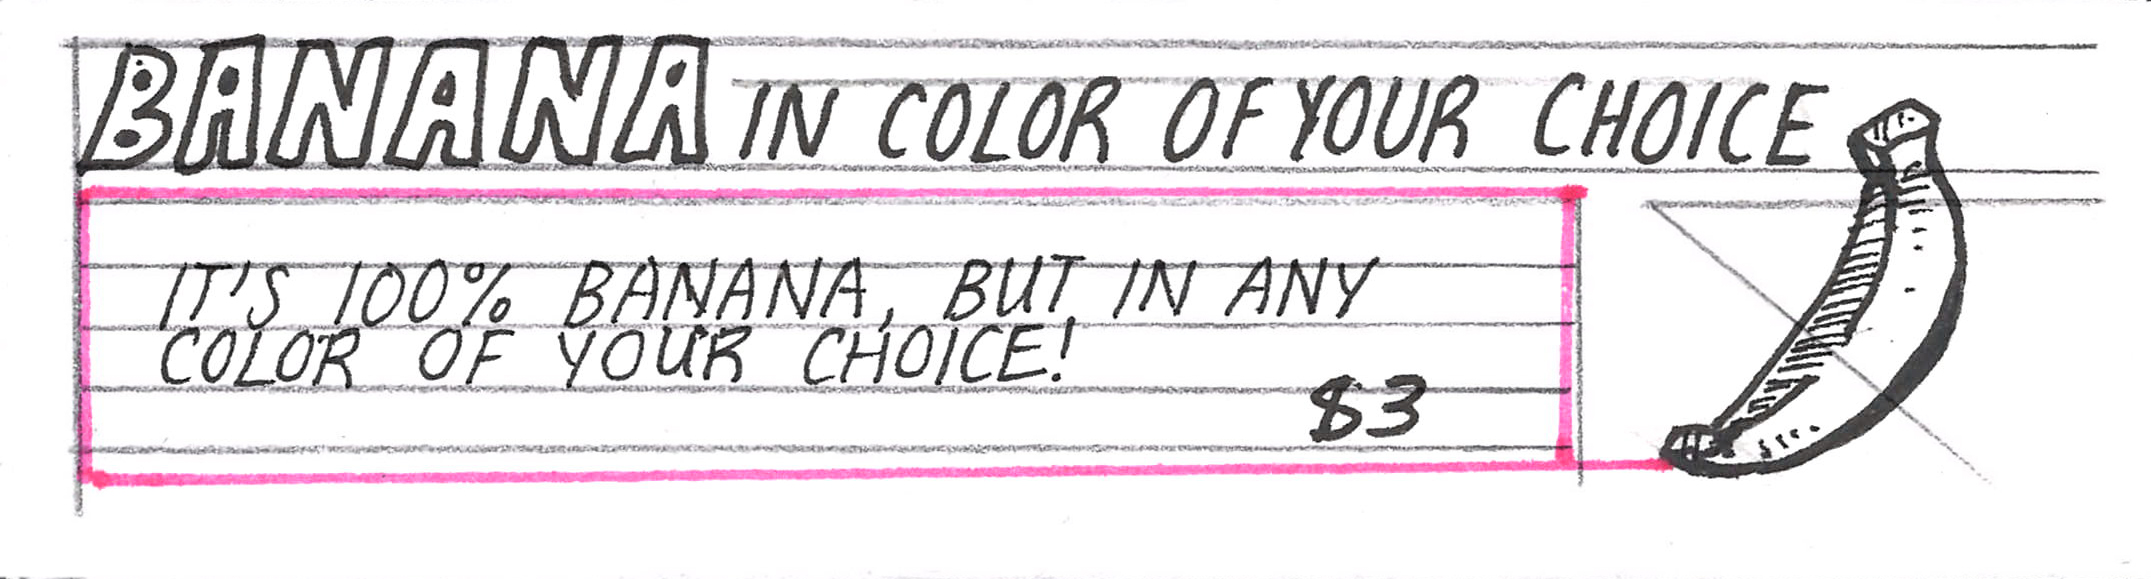 BANANA IN COLOR OF YOUR CHOICE
IT'S 100% BANANA, BUT IN ANY
COLOR OF YOUR CHOICE!
$3